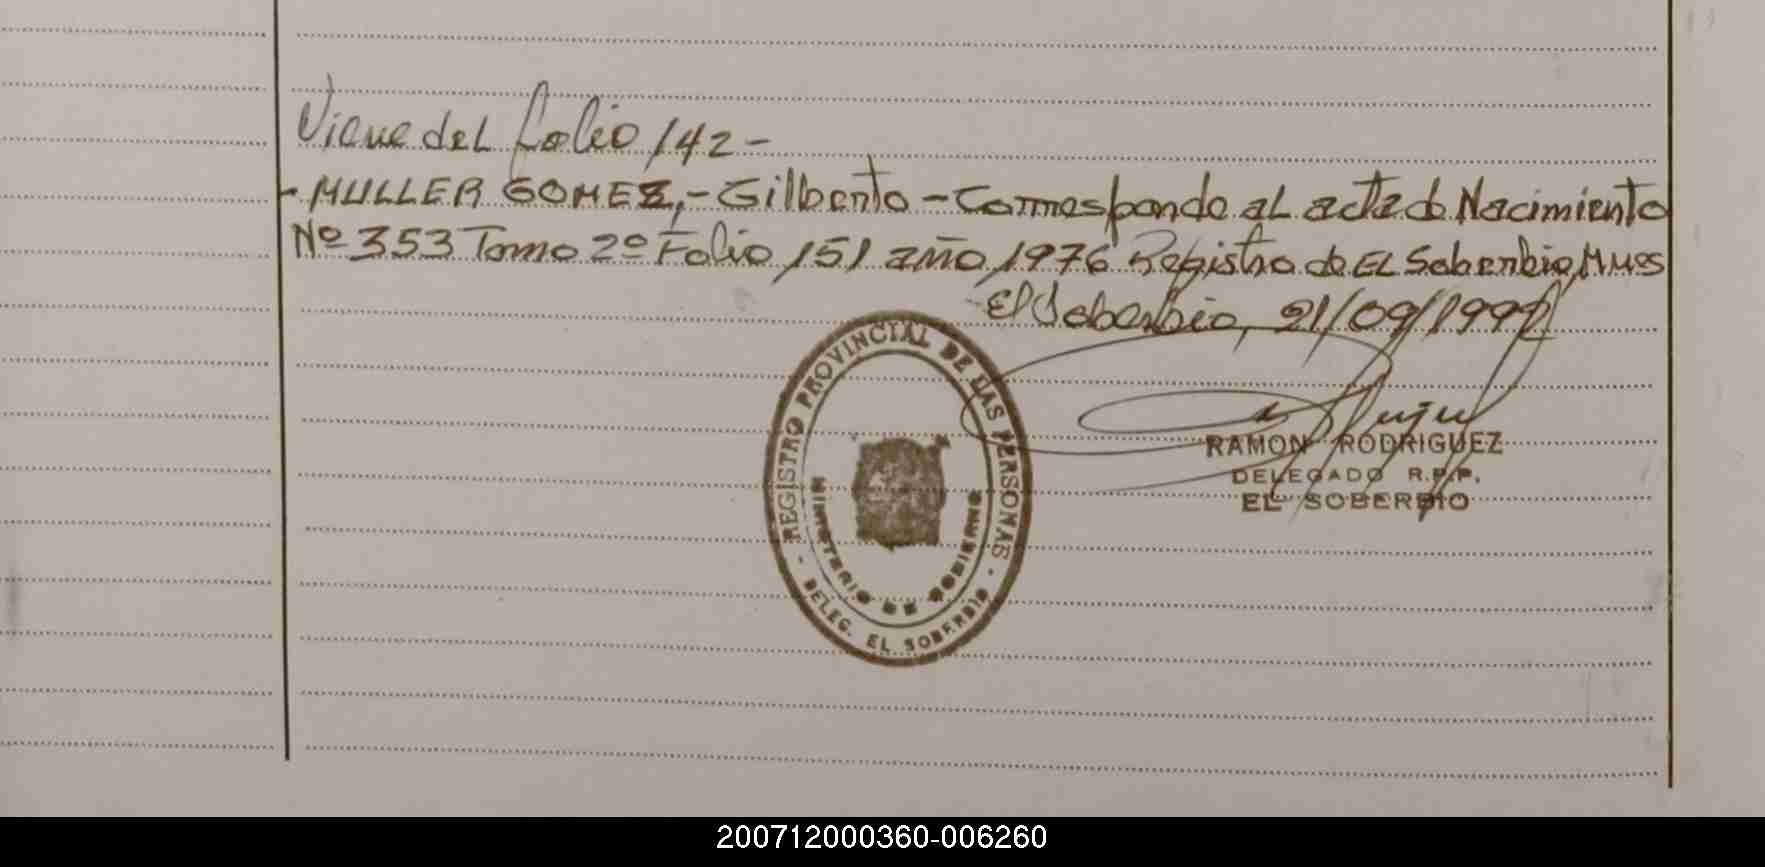 Viene del folio 142-
- MULLER GOMEZ,- Gilberto - Corresponde al acta de Nacimiento
Nº 353 Tomo 2º Folio 151 año 1976 Registro de El Soberbio, Mnes
El Soberbio, 21/09/1992
REGISTRO PROVINCIAL DE LAS PERSONAS
MINISTERIO DE GOBIERNO
- DELEG. EL SOBERBIO -
RAMON RODRIGUEZ
DELEGADO R.P.P.
EL SOBERBIO
200712000360-006260